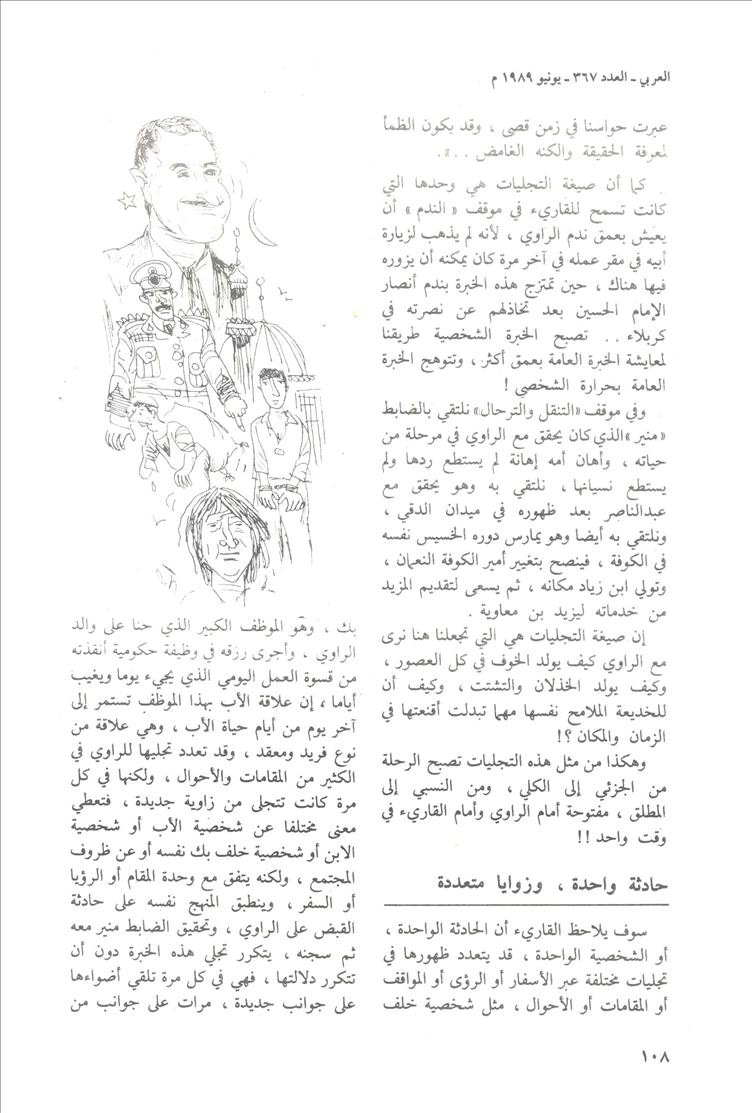 العربي ـ العدد ٣٦٧ ـ يونيو ١٩٨٩ م
عبرت حواسنا في زمن قصى ، وقد يكون الظمأ
لمعرفة الحقيقة والكنه الغامض . . » .
كما أن صيغة التجليات هي وحدها التي
كانت تسمح للقاريء في موقف « الندم » أن
يعيش بعمق ندم الراوي ، لأنه لم يذهب لزيارة
أبيه في مقر عمله في آخر مرة كان يمكنه أن يزوره
فيها هناك ، حين تمتزج هذه الخبرة بندم أنصار
الإمام الحسين بعد تخاذلهم عن نصرته في
كربلاء . . تصبح الخبرة الشخصية طريقنا
لمعايشة الخبرة العامة بعمق أكثر ، وتتوهج الخبرة
العامة بحرارة الشخصي !
وفي موقف «التنقل والترحال» نلتقي بالضابط
«منير» الذي كان يحقق مع الراوي في مرحلة من
حياته ، وأهان أمه إهانة لم يستطع ردها ولم
يستطع نسيانها ، نلتقي به وهو يحقق مع
عبدالناصر بعد ظهوره في ميدان الدقي ،
ونلتقي به أيضا وهو يمارس دوره الخسيس نفسه
في الكوفة ، فينصح بتغيير أمير الكوفة النعمان ،
وتولي ابن زياد مكانه ، ثم يسعى لتقديم المزيد
من خدماته ليزيد بن معاوية .
إن صيغة التجليات هي التي تجعلنا هنا نرى
مع الراوي كيف يولد الخوف في كل العصور ،
وكيف يولد الخذلان والتشتت ، وكيف أن
للخديعة الملامح نفسها مهما تبدلت أقنعتها في
الزمان والمكان ؟!
وهكذا من مثل هذه التجليات تصبح الرحلة
من الجزئي إلى الكلي ، ومن النسبي إلى
المطلق ، مفتوحة أمام الراوي وأمام القاريء في
وقت واحد !!
حادثة واحدة ، وزوايا متعددة
سوف يلاحظ القاريء أن الحادثة الواحدة ،
أو الشخصية الواحدة ، قد يتعدد ظهورها في
تجليات مختلفة عبر الأسفار أو الرؤى أو المواقف
أو المقامات أو الأحوال ، مثل شخصية خلف
بك ، وهو الموظف الكبير الذي حنا على والد
الراوي ، وأجرى رزقه في وظيفة حكومية أنقذته
من قسوة العمل اليومي الذي يجيء يوما ويغيب
أياما ، إن علاقة الأب بهذا الموظف تستمر إلى
آخر يوم من أيام حياة الأب ، وهي علاقة من
نوع فريد ومعقد ، وقد تعدد تجليها للراوي في
الكثير من المقامات والأحوال ، ولكنها في كل
مرة كانت تتجلى من زاوية جديدة ، فتعطي
معنى مختلفا عن شخصية الأب أو شخصية
الابن أو شخصية خلف بك نفسه أو عن ظروف
المجتمع ، ولكنه يتفق مع وحدة المقام أو الرؤيا
أو السفر ، وينطبق المنهج نفسه على حادثة
القبض على الراوي ، وتحقيق الضابط منير معه
ثم سجنه ، يتكرر تجلي هذه الخبرة دون أن
تتكرر دلالتها ، فهي في كل مرة تلقي أضواءها
على جوانب جديدة ، مرات على جوانب من
١٠٨